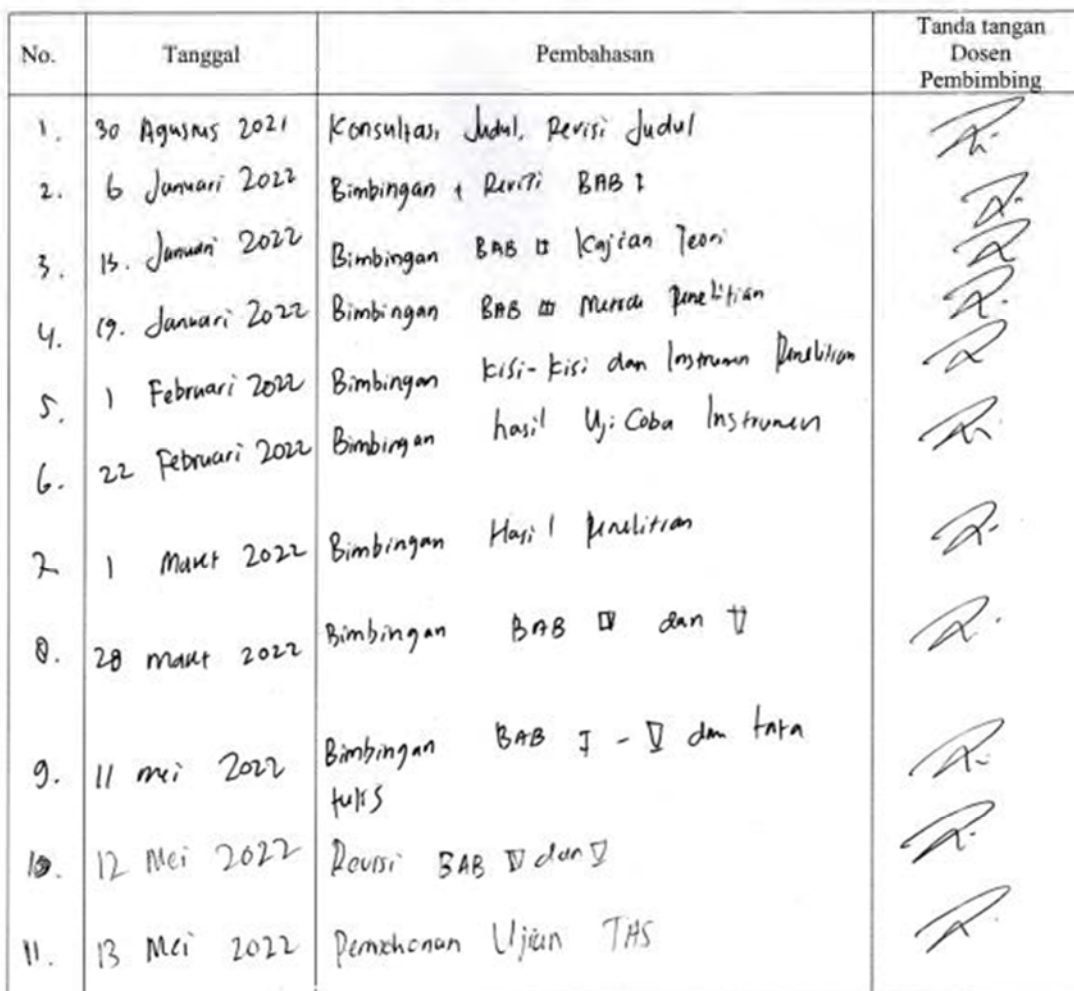 No. Tanggal Pembahasan Tanda tangan
Dosen
Pembimbing
1. 30 Agustus 2021 Konsultasi Judul, Revisi Judul
2. 6 Januari 2022 Bimbingan + Revisi BAB I
3. 13. Januari 2022 Bimbingan BAB II Kajian Teori
4. 19. Januari 2022 Bimbingan BAB III Metode Penelitian
5. 1 Februari 2022 Bimbingan kisi-kisi dan Instrumen Penelitian
6. 22 Februari 2022 Bimbingan hasil Uji Coba Instrumen
7. 1 Maret 2022 Bimbingan Hasil Penelitian
8. 28 Maret 2022 Bimbingan BAB IV dan V
9. 11 mei 2022 Bimbingan BAB I - V dan tata
tulis
10. 12 Mei 2022 Revisi BAB IV dan V
11. 13 Mei 2022 Permohonan Ujian TAS